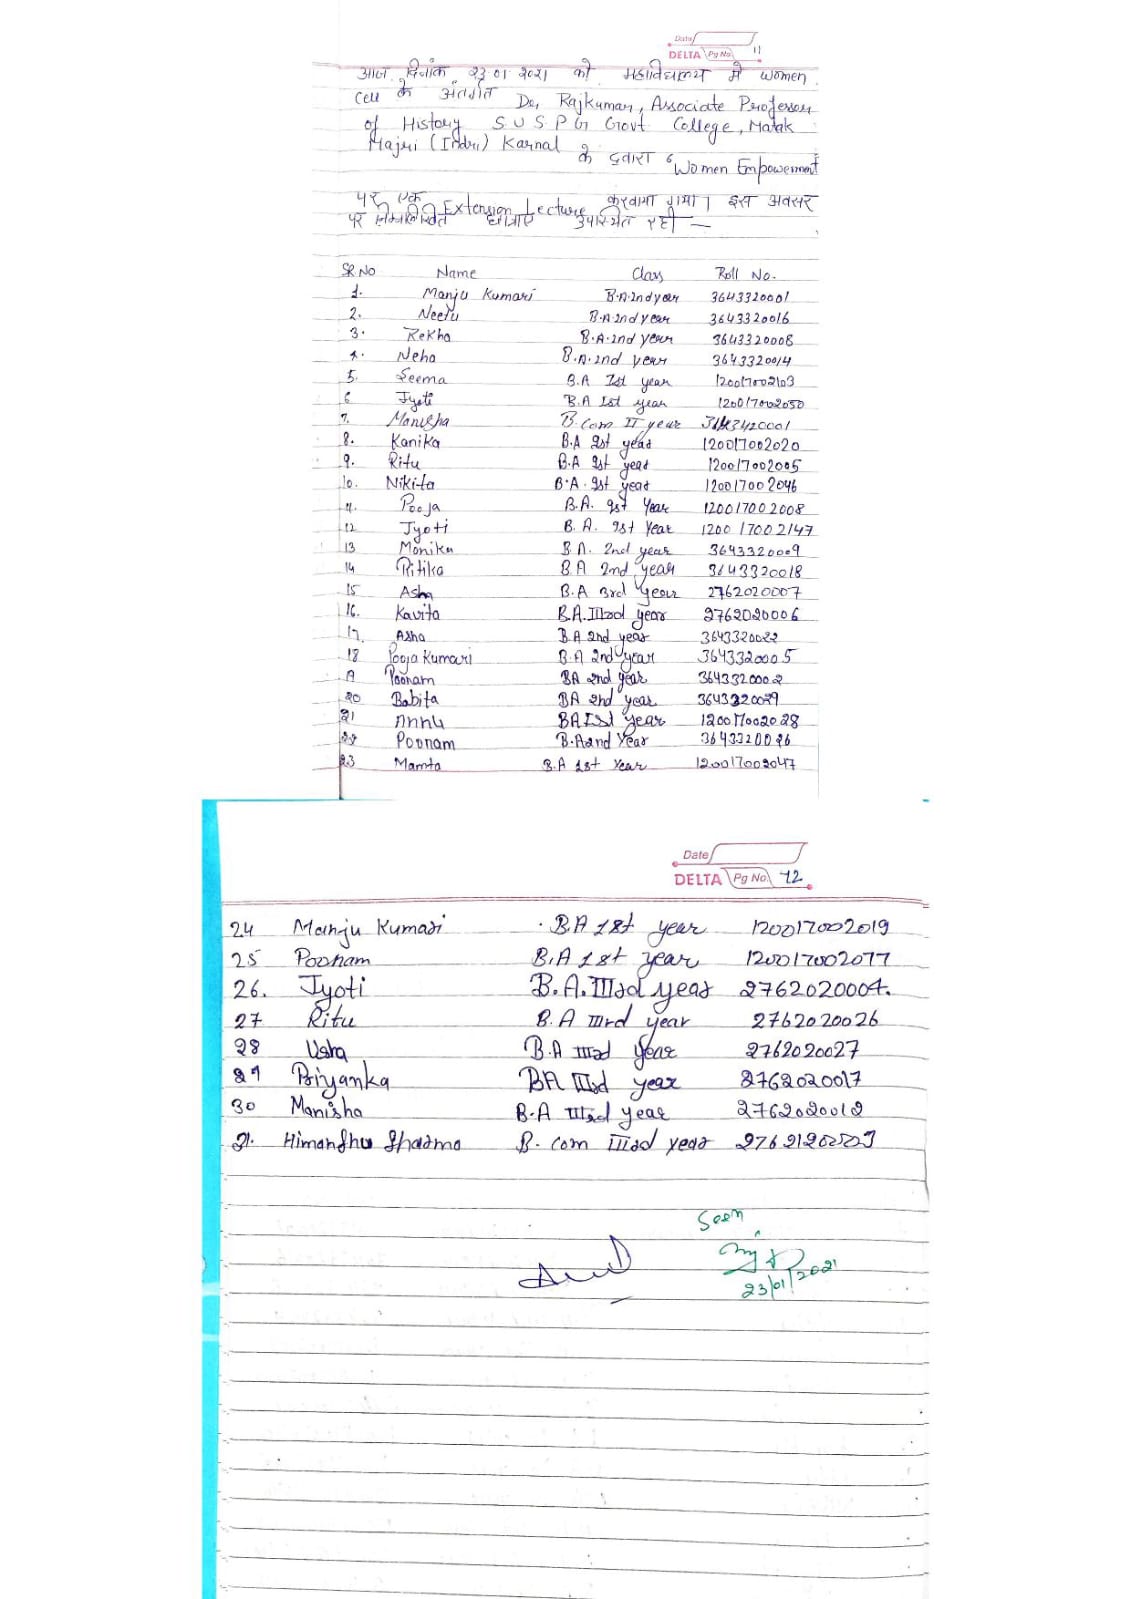 Date
DELTA Pg No. 11
आज दिनांक 23.01.2021 को महाविद्यालय में women
Cell के अंतर्गत Dr. Rajkumar, Associate Professor
of History S U S P G Govt College, Matak
Majri (Indri) Karnal के द्वारा "Women Empowerment
पर एक Extension Lecture करवाया गया। इस अवसर
पर निम्नलिखित छात्राएं उपस्थित रही —
SR No Name Class Roll No.
1. Manju Kumari B.A.2nd year 3643320001
2. Neetu B.A.2nd year 3643320016
3. Rekha B.A.2nd year 3643320008
4. Neha B.A.2nd year 3643320014
5. Seema B.A Ist year 120017002103
6 Jyoti B.A Ist year 120017002050
7. Manisha B.com II year
8. Kanika B.A 1st year 120017002020
9. Ritu B.A 1st year 120017002005
10. Nikita B.A. 1st year 120017002046
11. Pooja B.A. 1st Year 120017002008
12 Jyoti B.A. 1st Year 120017002147
13 Monika B.A. 2nd year 3643320009
14 Ritika B.A 2nd year 3643320018
15 Asha B.A 3rd Year 2762020007
16. Kavita B.A.IIIrd year 2762020006
17. Asha B.A 2nd year 3643320022
18 Pooja Kumari B.A 2nd year 3643320005
19 Poonam BA 2nd year 3643320002
20 Babita BA 2nd year 3643320029
21 Annu BA Ist year 120017002028
22 Poonam B.A 2nd Year 3643320026
23 Mamta B.A 1st Year 120017002047
Date
DELTA Pg No. 12
24 Manju Kumari B.A 1st year 120017002019
25 Poonam B.A 1st year 120017002077
26. Jyoti B.A. IIIrd year 2762020004.
27 Ritu B.A IIIrd year 2762020026
28 Usha B.A IIIrd year 2762020027
29 Priyanka BA IIIrd year 2762020017
30 Manisha B.A IIIrd year 2762020012
31. Himanshu Sharma B. com IIIrd year
Seen
23/01/2021